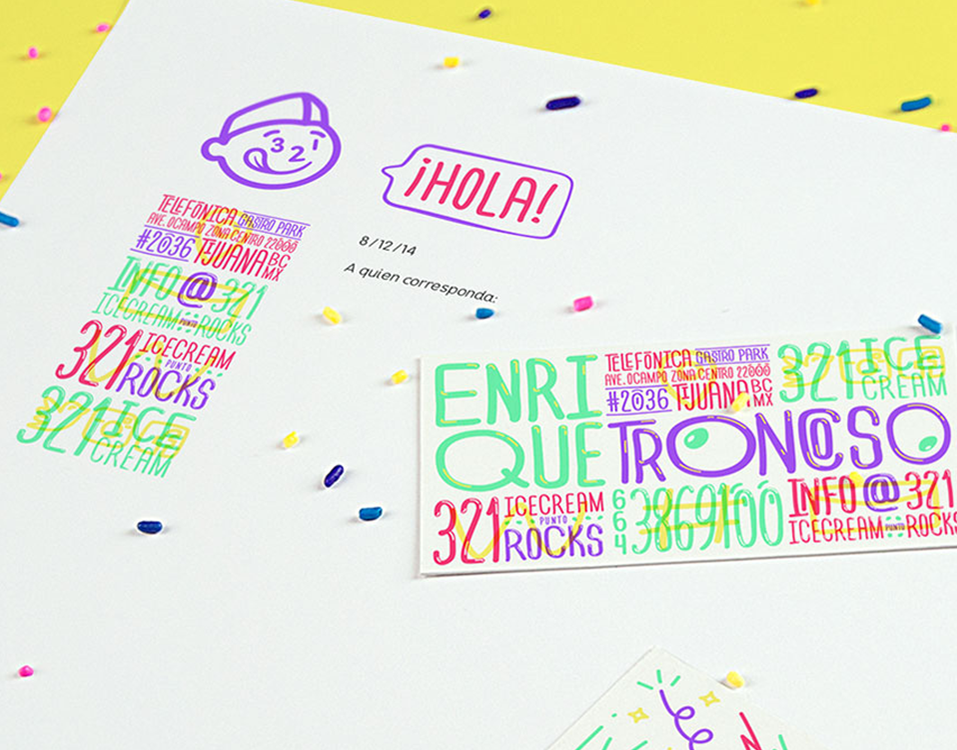 321
¡HOLA!
TELEFÓNICA GASTRO PARK
AVE. OCAMPO ZONA CENTRO 22000
#2036 TIJUANA BC MX
INFO@321
ICECREAM PUNTO ROCKS
321 ICECREAM
PUNTO
ROCKS
321 ICE
CREAM
8/12/14
A quien corresponda:
ENRI
QUE TRONCOSO
TELEFÓNICA GASTRO PARK
AVE. OCAMPO ZONA CENTRO 22000
#2036 TIJUANA BC MX
321 ICE
CREAM
321 ICECREAM
PUNTO
ROCKS
664 3869100
INFO@321
ICECREAM PUNTO ROCKS